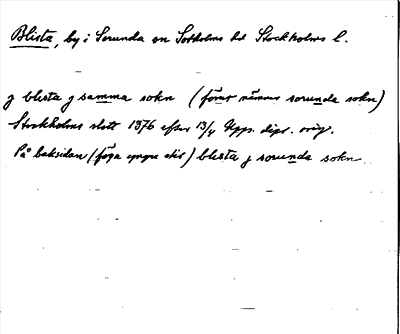 Blista, by i Sorunda sn Sotholms hd Stockholms l.
j blista j samma sokn (förut nämns sorunda sokn)
Stockholms slott 1376 efter 13/4 Upps. dipl. orig.
På baksidan (föga yngre stil) blista j sorunda sokn.